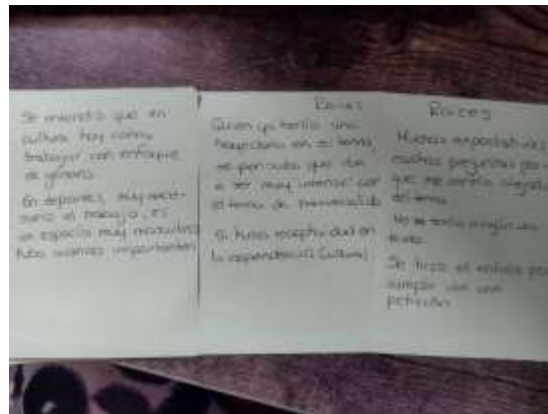 Se encontró que en
cultura hay cómo
trabajar con enfoque
de género.
En deportes, muy nece-
sario el trabajo, es
un espacio muy masculino
hubo avances importantes
Raíces
Quien ya tenía una
trayectoria en el tema,
se pensaba que iba
a ser muy intenso por
el tema de
Si hubo receptividad en
la dependencia (cultura)
Raíces
Muchas expectativas,
muchas preguntas por-
que me sentía alejada
del tema.
No tenía ningún
Se hizo el enlace por
cumplir con una
petición